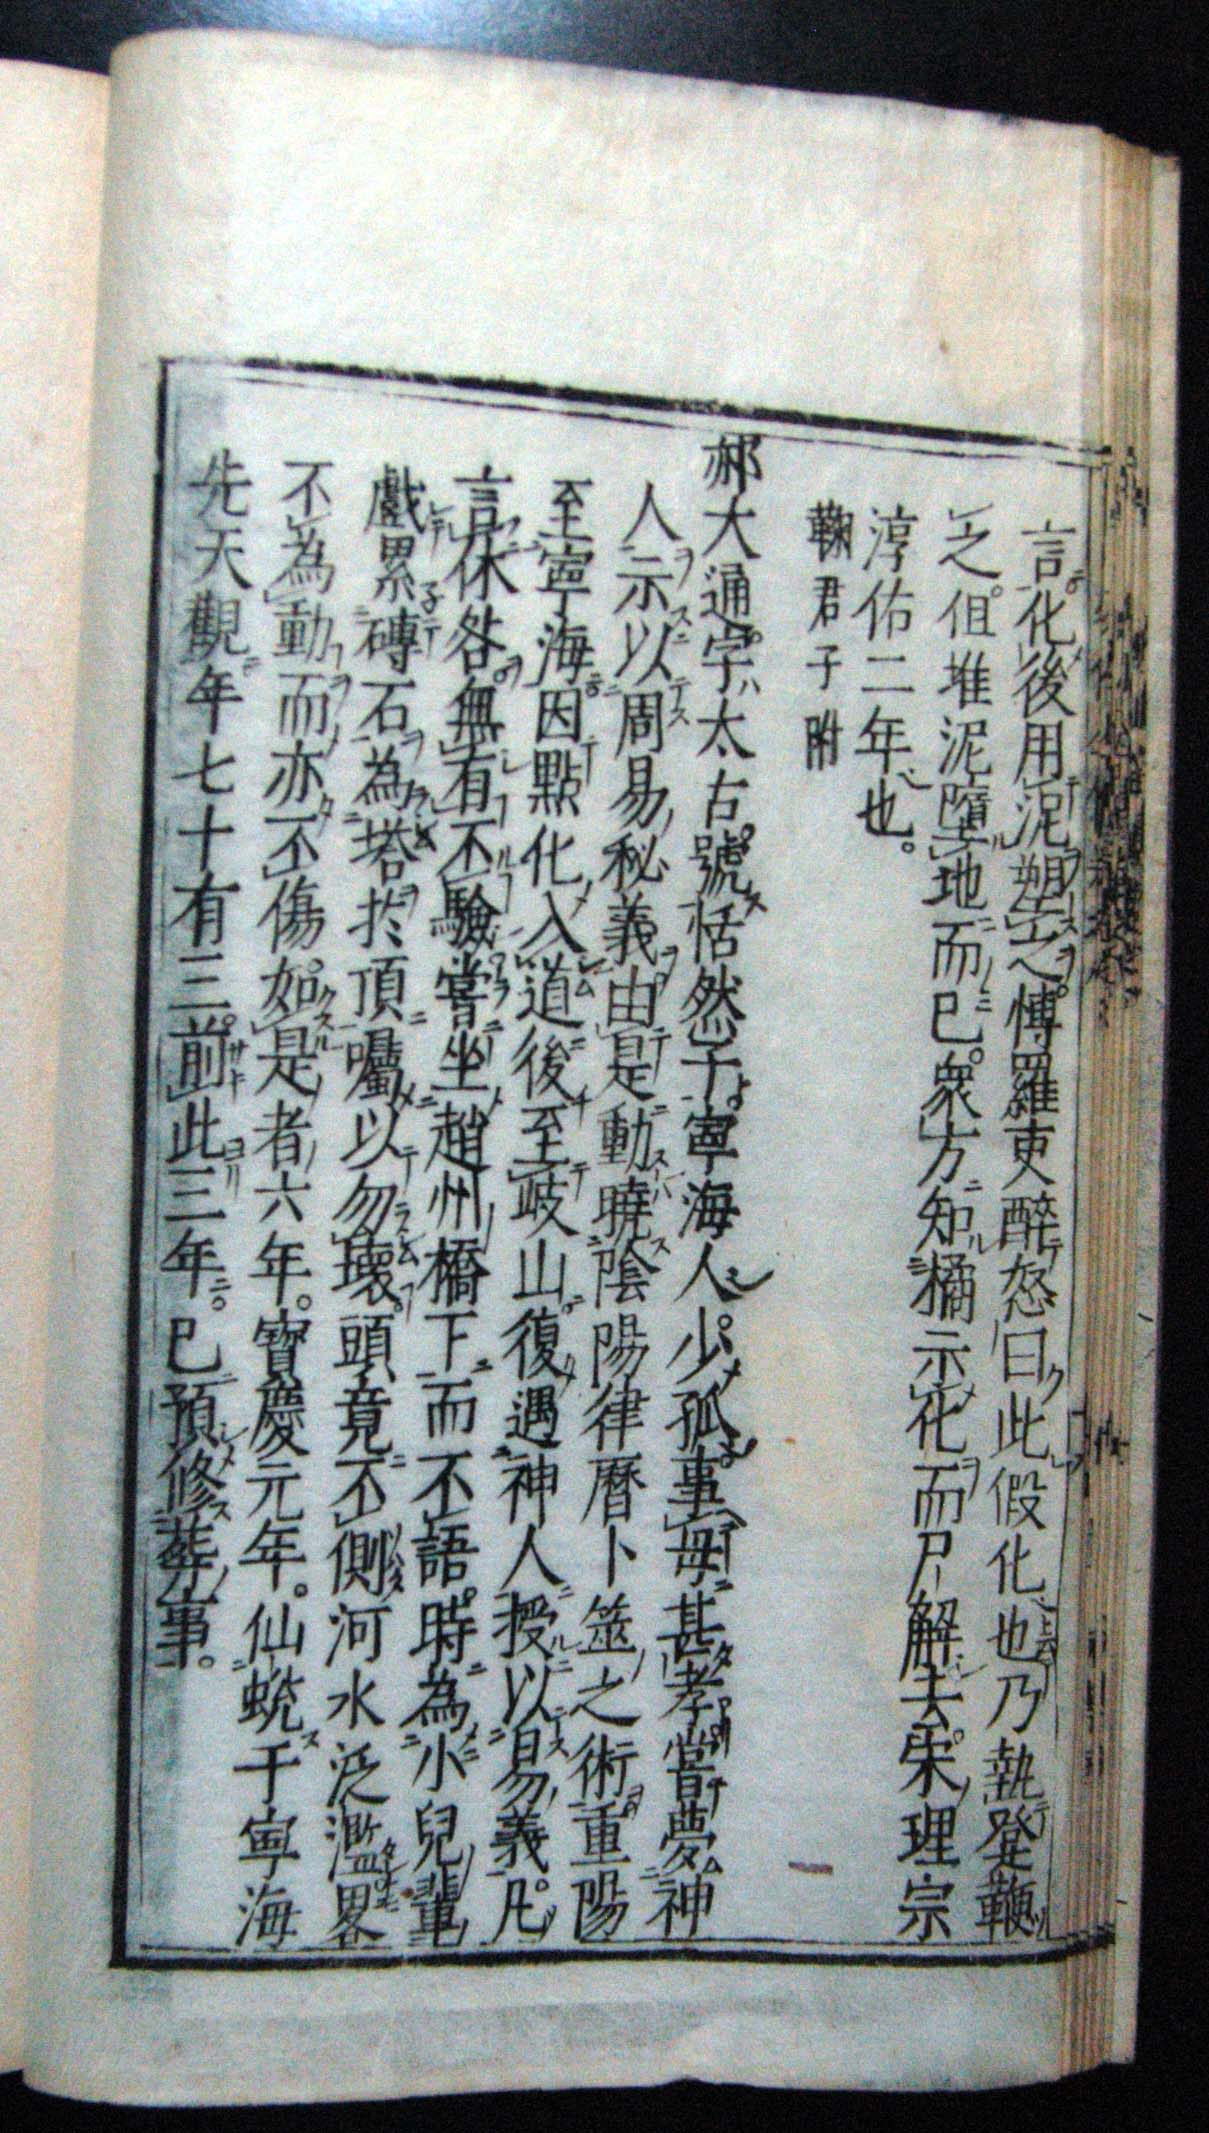 言化後用泥塑之。愽羅吏醉怒曰此假化也乃執登鞭
之。但堆泥墮地而已。衆方知橘示化而尸解去。宋理宗
淳佑二年也。
鞠君子附
郝大通字太古。號恬然子。寧海人。少孤事母甚孝。嘗夢神
人示以周易秘義。由是動曉陰陽律曆卜筮之術。重陽
至寧海。因點化入道後至岐山。復遇神人授以易義。凡
言休咎。無有不驗。嘗坐趙州橋下而不語。時為小兒輩
戲累磚石為塔於頂囑以勿壞。頭竟不側河水泛濫畧
不為動而亦不傷。如是者六年。寶慶元年。仙蛻于寧海
先天觀年七十有三。前此三年。已預修葬事。